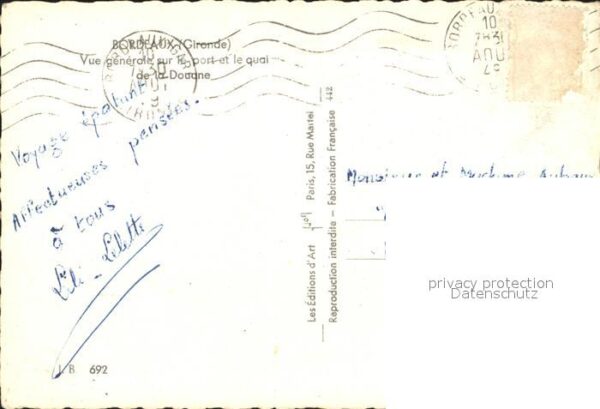 BORDEAUX (Gironde)
Vue générale sur le port et le quai
de la Douane
Voyage épatant
Affectueuses pensées.
à tous
Lili - Lilette
J. B. 692
Les Editions d'Art Paris, 15, Rue Martel
Reproduction interdite - Fabrication Française 442
BORDEAUX
10
AOU
Monsieur et Madame
privacy protection
Datenschutz